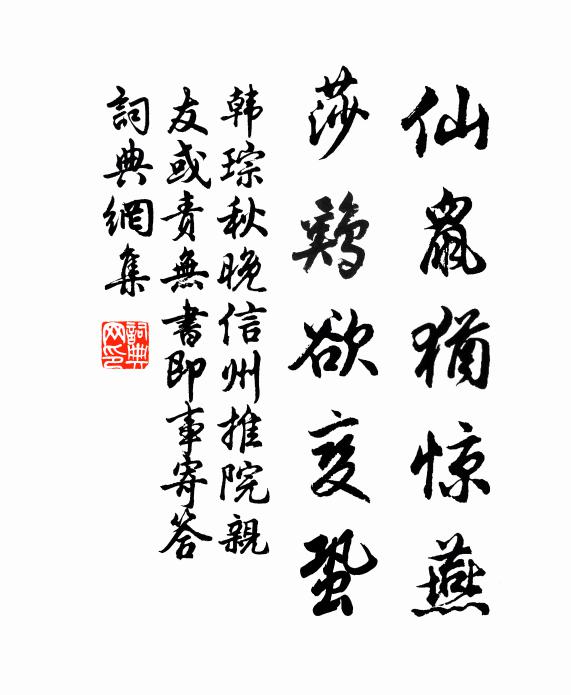 仙鼠猶惊燕
莎鷄欲变蛩
韩琮秋晚信州推院親
友或责無書即事寄答
詞典網集
詞典網印